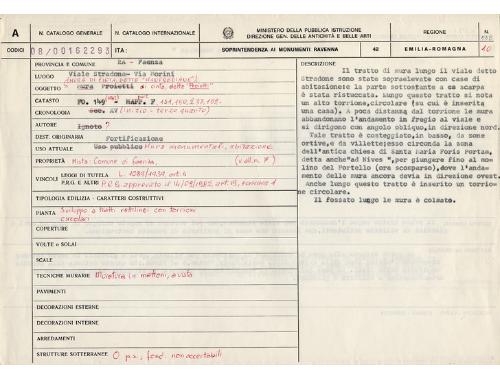 A
N. CATALOGO GENERALE
N. CATALOGO INTERNAZIONALE
MINISTERO DELLA PUBBLICA ISTRUZIONE
DIREZIONE GEN. DELLE ANTICHITÀ E BELLE ARTI
REGIONE
N.
CODICI
08/00162293
ITA:
SOPRINTENDENZA AI MONUMENTI RAVENNA
42
EMILIA-ROMAGNA
10
PROVINCIA E COMUNE RA - Faenza
LUOGO Viale Stradone- Via Borini
OGGETTO mura di cinta dette
CATASTO FG. 149 - MAPP. F
CRONOLOGIA sec. XV (inizio - terzo quarto)
AUTORE Ignoto?
DEST. ORIGINARIA Fortificazione
USO ATTUALE Uso pubblico Mura monumentali, abitazione
PROPRIETÀ Mista: Comune di Faenza (vall. n. )
VINCOLI LEGGI DI TUTELA L. 1089/1939 art. 4
P.R.G. E ALTRI P.R.G. approvato il art. 13, comma 1
TIPOLOGIA EDILIZIA - CARATTERI COSTRUTTIVI
PIANTA Sviluppo a tratti rettilinei con torrioni
circolari
COPERTURE
VOLTE o SOLAI
SCALE
TECNICHE MURARIE Muratura in mattoni, a vista
PAVIMENTI
DECORAZIONI ESTERNE
DECORAZIONI INTERNE
ARREDAMENTI
STRUTTURE SOTTERRANEE O p.s., fond. non accertabili
DESCRIZIONE
Il tratto di mura lungo il viale detto
Stradone sono state sopraelevate con case di
abitazione: la parte sottostante a scarpa
è stata ristuccata. Lungo questo tratto si nota
un alto torrione, circolare (su cui è inserita
una casa). A poca distanza dal torrione le mura
abbandonano l'andamento in fregio al viale e
si dirigono con angolo obliquo, in direzione nord.
Tale tratto è costeggiato, in basso, da
ortive, e da villette; esso circonda la zona
dell'antica chiesa di Santa Maria Foris Portam,
detta anche "ad Nives", per giungere fino al molino
del Portello (ora scomparso), dove l'andamento
delle mura ancora devia in direzione ovest.
Anche lungo questo tratto è inserito un torrione
circolare.
Il fossato lungo le mura è colmato.